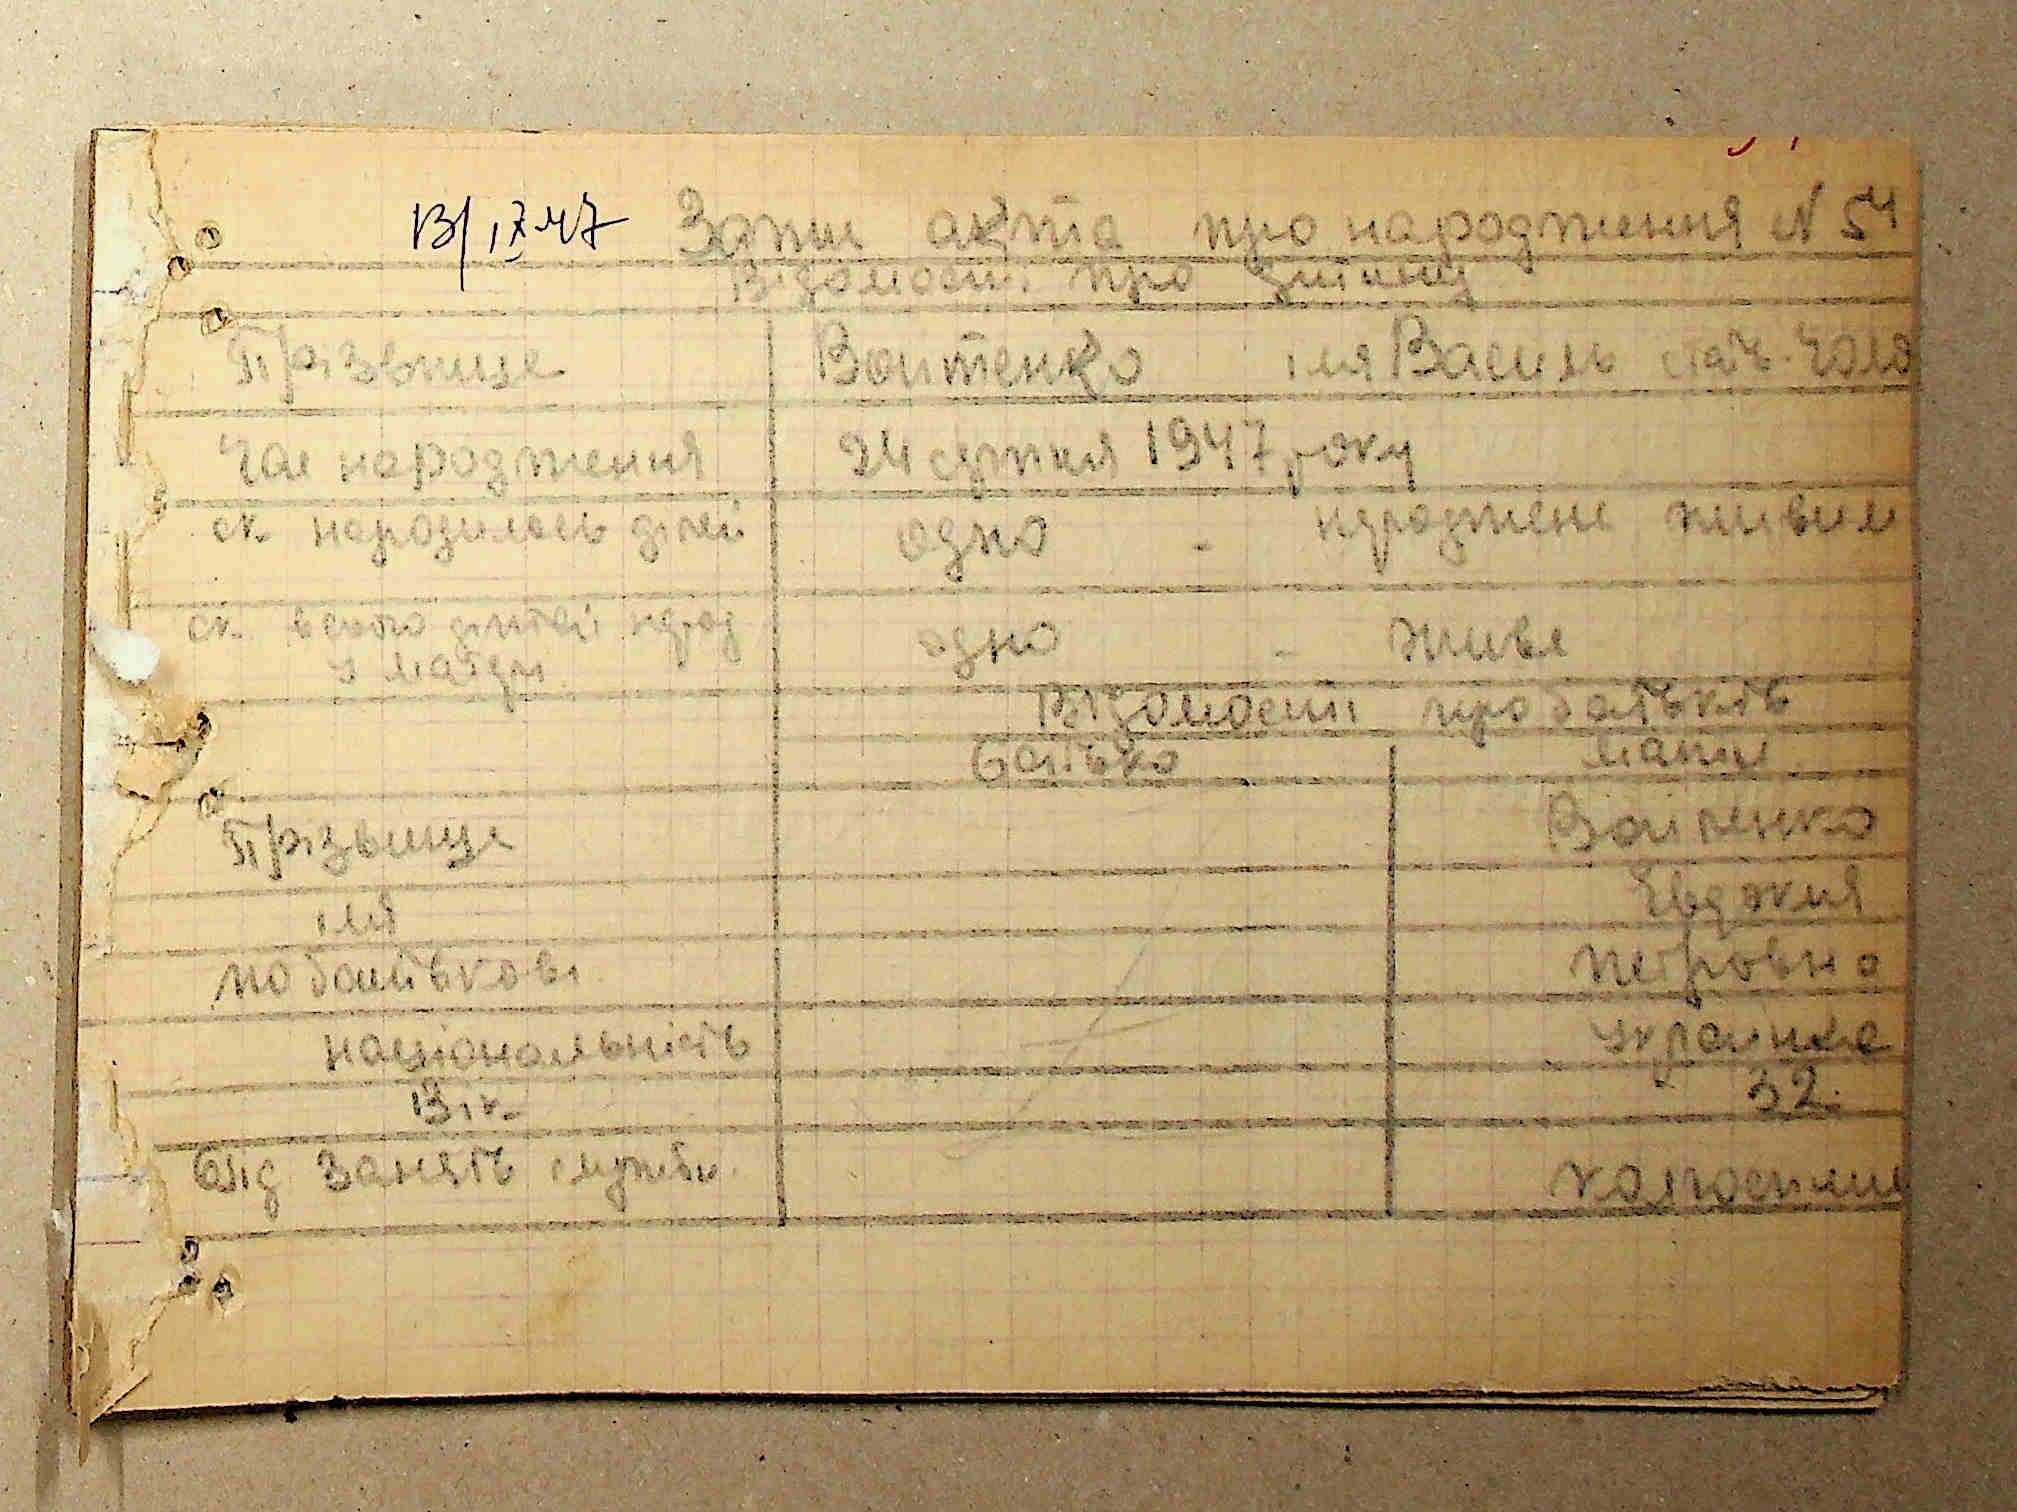 13/IX 47 Запис акта про народження N 54
Відомості про дитину
Прізвище Воитенко імя Василь стать чоло
Час народження 24 серпня 1947 року
ск народилось дітей одно - нуроджене живим
ск. всього дітей народ одно - живе
у матері
Відомості про батьків
батько мати
Прізвище Воітенко
імя Евдокия
по батькові петровна
національність украинка
Вік 32.
Від занять служби колгоспниц